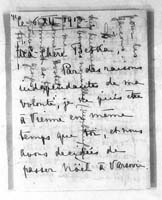 Ma chère Bertha,
Par des raisons
indépendantes de ma
volonté, je ne puis être
à Vienne en même
temps que toi, et nous
avons décidé de
passer Noël à Varsovie.